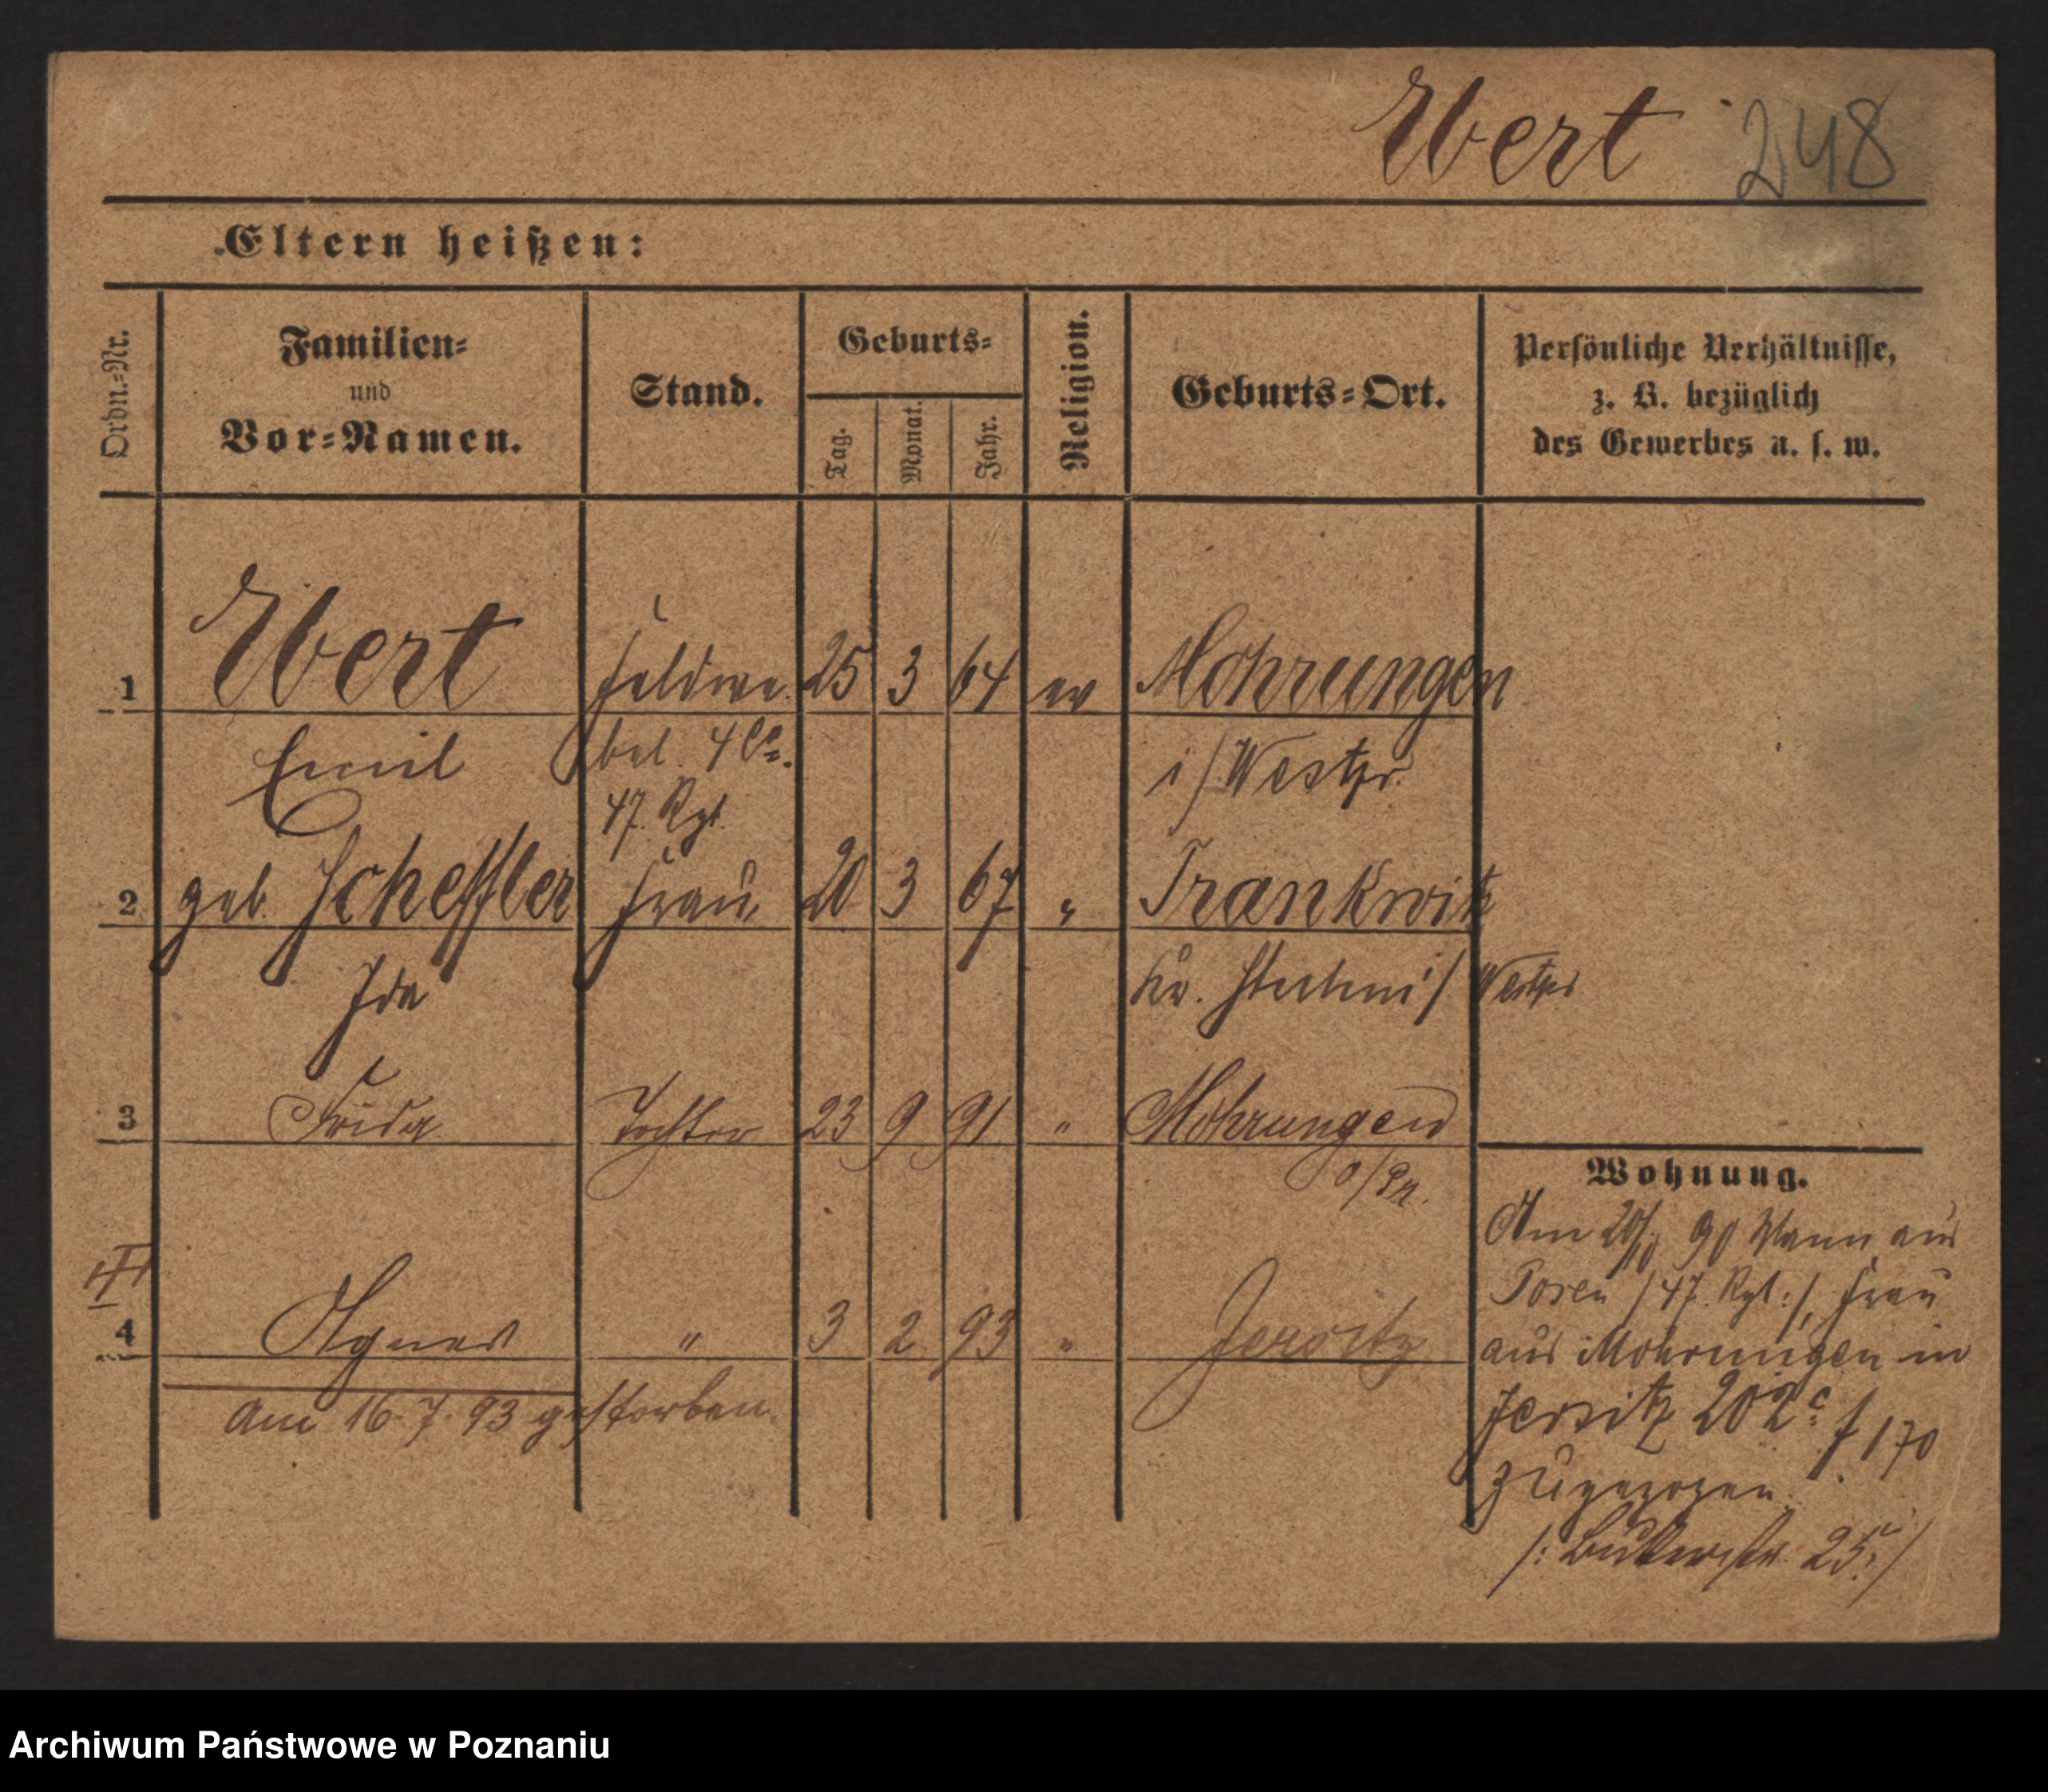 Wert 248
Eltern heißen:
Ordn.-Nr.
Familien-
und
Vor-Namen.
Stand.
Geburts-
Tag.
Monat.
Jahr.
Religion.
Geburts-Ort.
Persönliche Verhältnisse,
z. B. bezüglich
des Gewerbes u. s. w.
1 Wert Feldwe 25 3 64 ev Mohrungen
Emil bel. 4 Co. i/Westpr.
47. Rgt.
2 geb. Scheffler Frau 20 3 67 " Trankwitz
Ida Kr. Stuhm i/Westpr
3 Frida Tochter 23 9 91 " Mohrungen
o/Pr.
4 Agnes " 3 2 93 " Jersitz
am 16. 7. 93 gestorben.
Wohnung.
Am 20/10 90 Mann aus
Posen /47. Rgt:/, Frau
aus Mohrungen in
Jersitz 202c f 170
zugezogen.